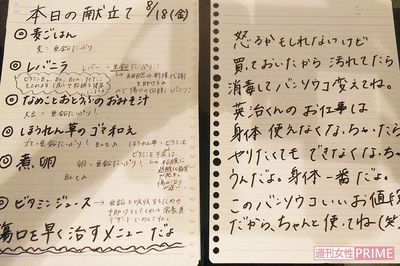 本日の献立て 8/18(金)
麦ごはん
麦・亜鉛たっぷり
レバニラ
レバー・亜鉛たっぷり
なめことおとうふのおみそ汁
大豆・亜鉛たっぷり
ほうれん草のゴマ和え
ゴマ・亜鉛たっぷり
煮卵
卵・亜鉛たっぷり
ビタミンジュース
傷口を早く治すメニューだよ
怒るかもしれないけど
買っておいたから汚れてたら
消毒してバンソウコ変えてね。
英治くんのお仕事は
身体使えなくなっちゃったら
やりたくてもできなくなっちゃ
うんだよ。身体一番だよ。
このバンソウコいいお値段
だから、ちゃんと使ってね(笑)
週刊女性PRIME